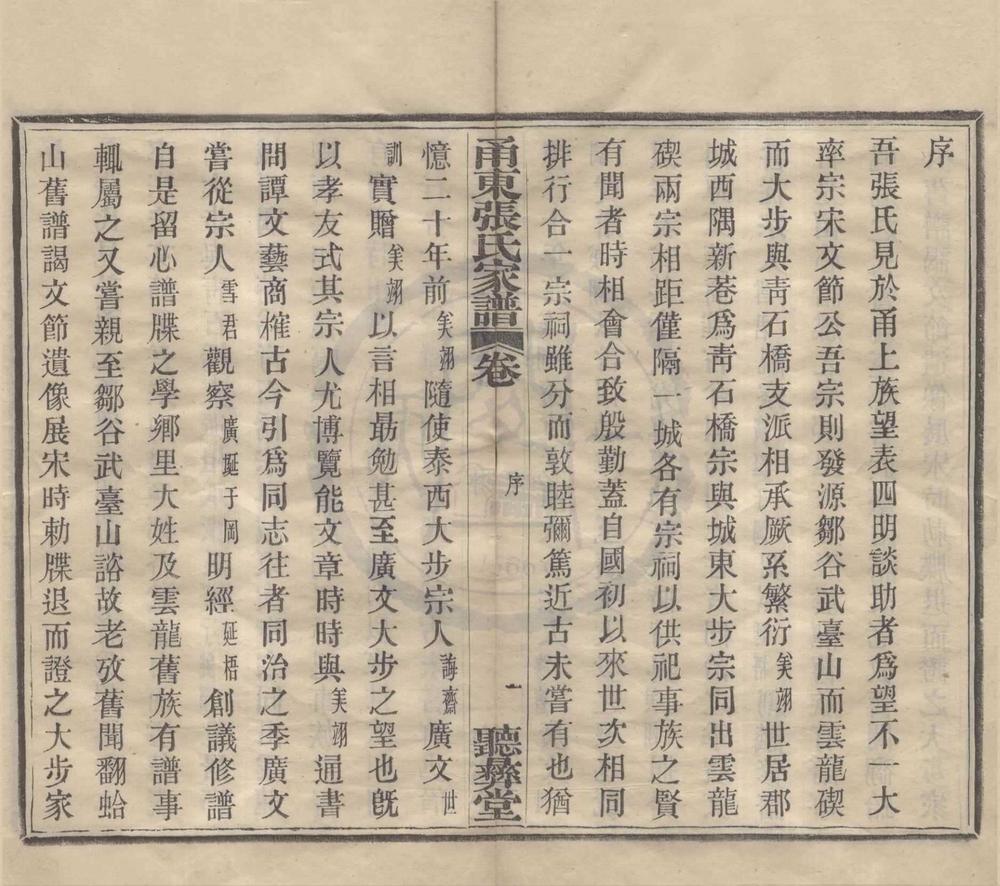 序
吾張氏見於甬上族望表四明談助者爲望不一大
率宗宋文節公吾宗則發源鄒谷武臺山而雲龍碶
而大步與靑石橋支派相承厥系繁衍美翊世居郡
城西隅新巷爲靑石橋宗與城東大步宗同出雲龍
碶兩宗相距僅隔一城各有宗祠以供祀事族之賢
有聞者時相會合致殷勤蓋自國初以來世次相同
排行合一宗祠雖分而敦睦彌篤近古未嘗有也猶
甬東張氏家譜 卷 序 一 聽彝堂
憶二十年前美翊隨使泰西大步宗人誨齋廣文世
訓實贈美翊以言相最勉甚至廣文大步之望也旣
以孝友式其宗人尤博覽能文章時時與美翊通書
問譚文藝商榷古今引爲同志往者同治之季廣文
嘗從宗人雪君觀察廣埏于岡明經延梧創議修譜
自是留心譜牒之學鄉里大姓及雲龍舊族有譜事
輒屬之又嘗親至鄒谷武臺山諮故老攷舊聞翻蛤
山舊譜謁文節遺像展宋時勅牒退而證之大步家